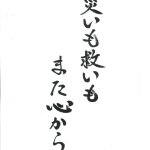 災いも救いも
また心から